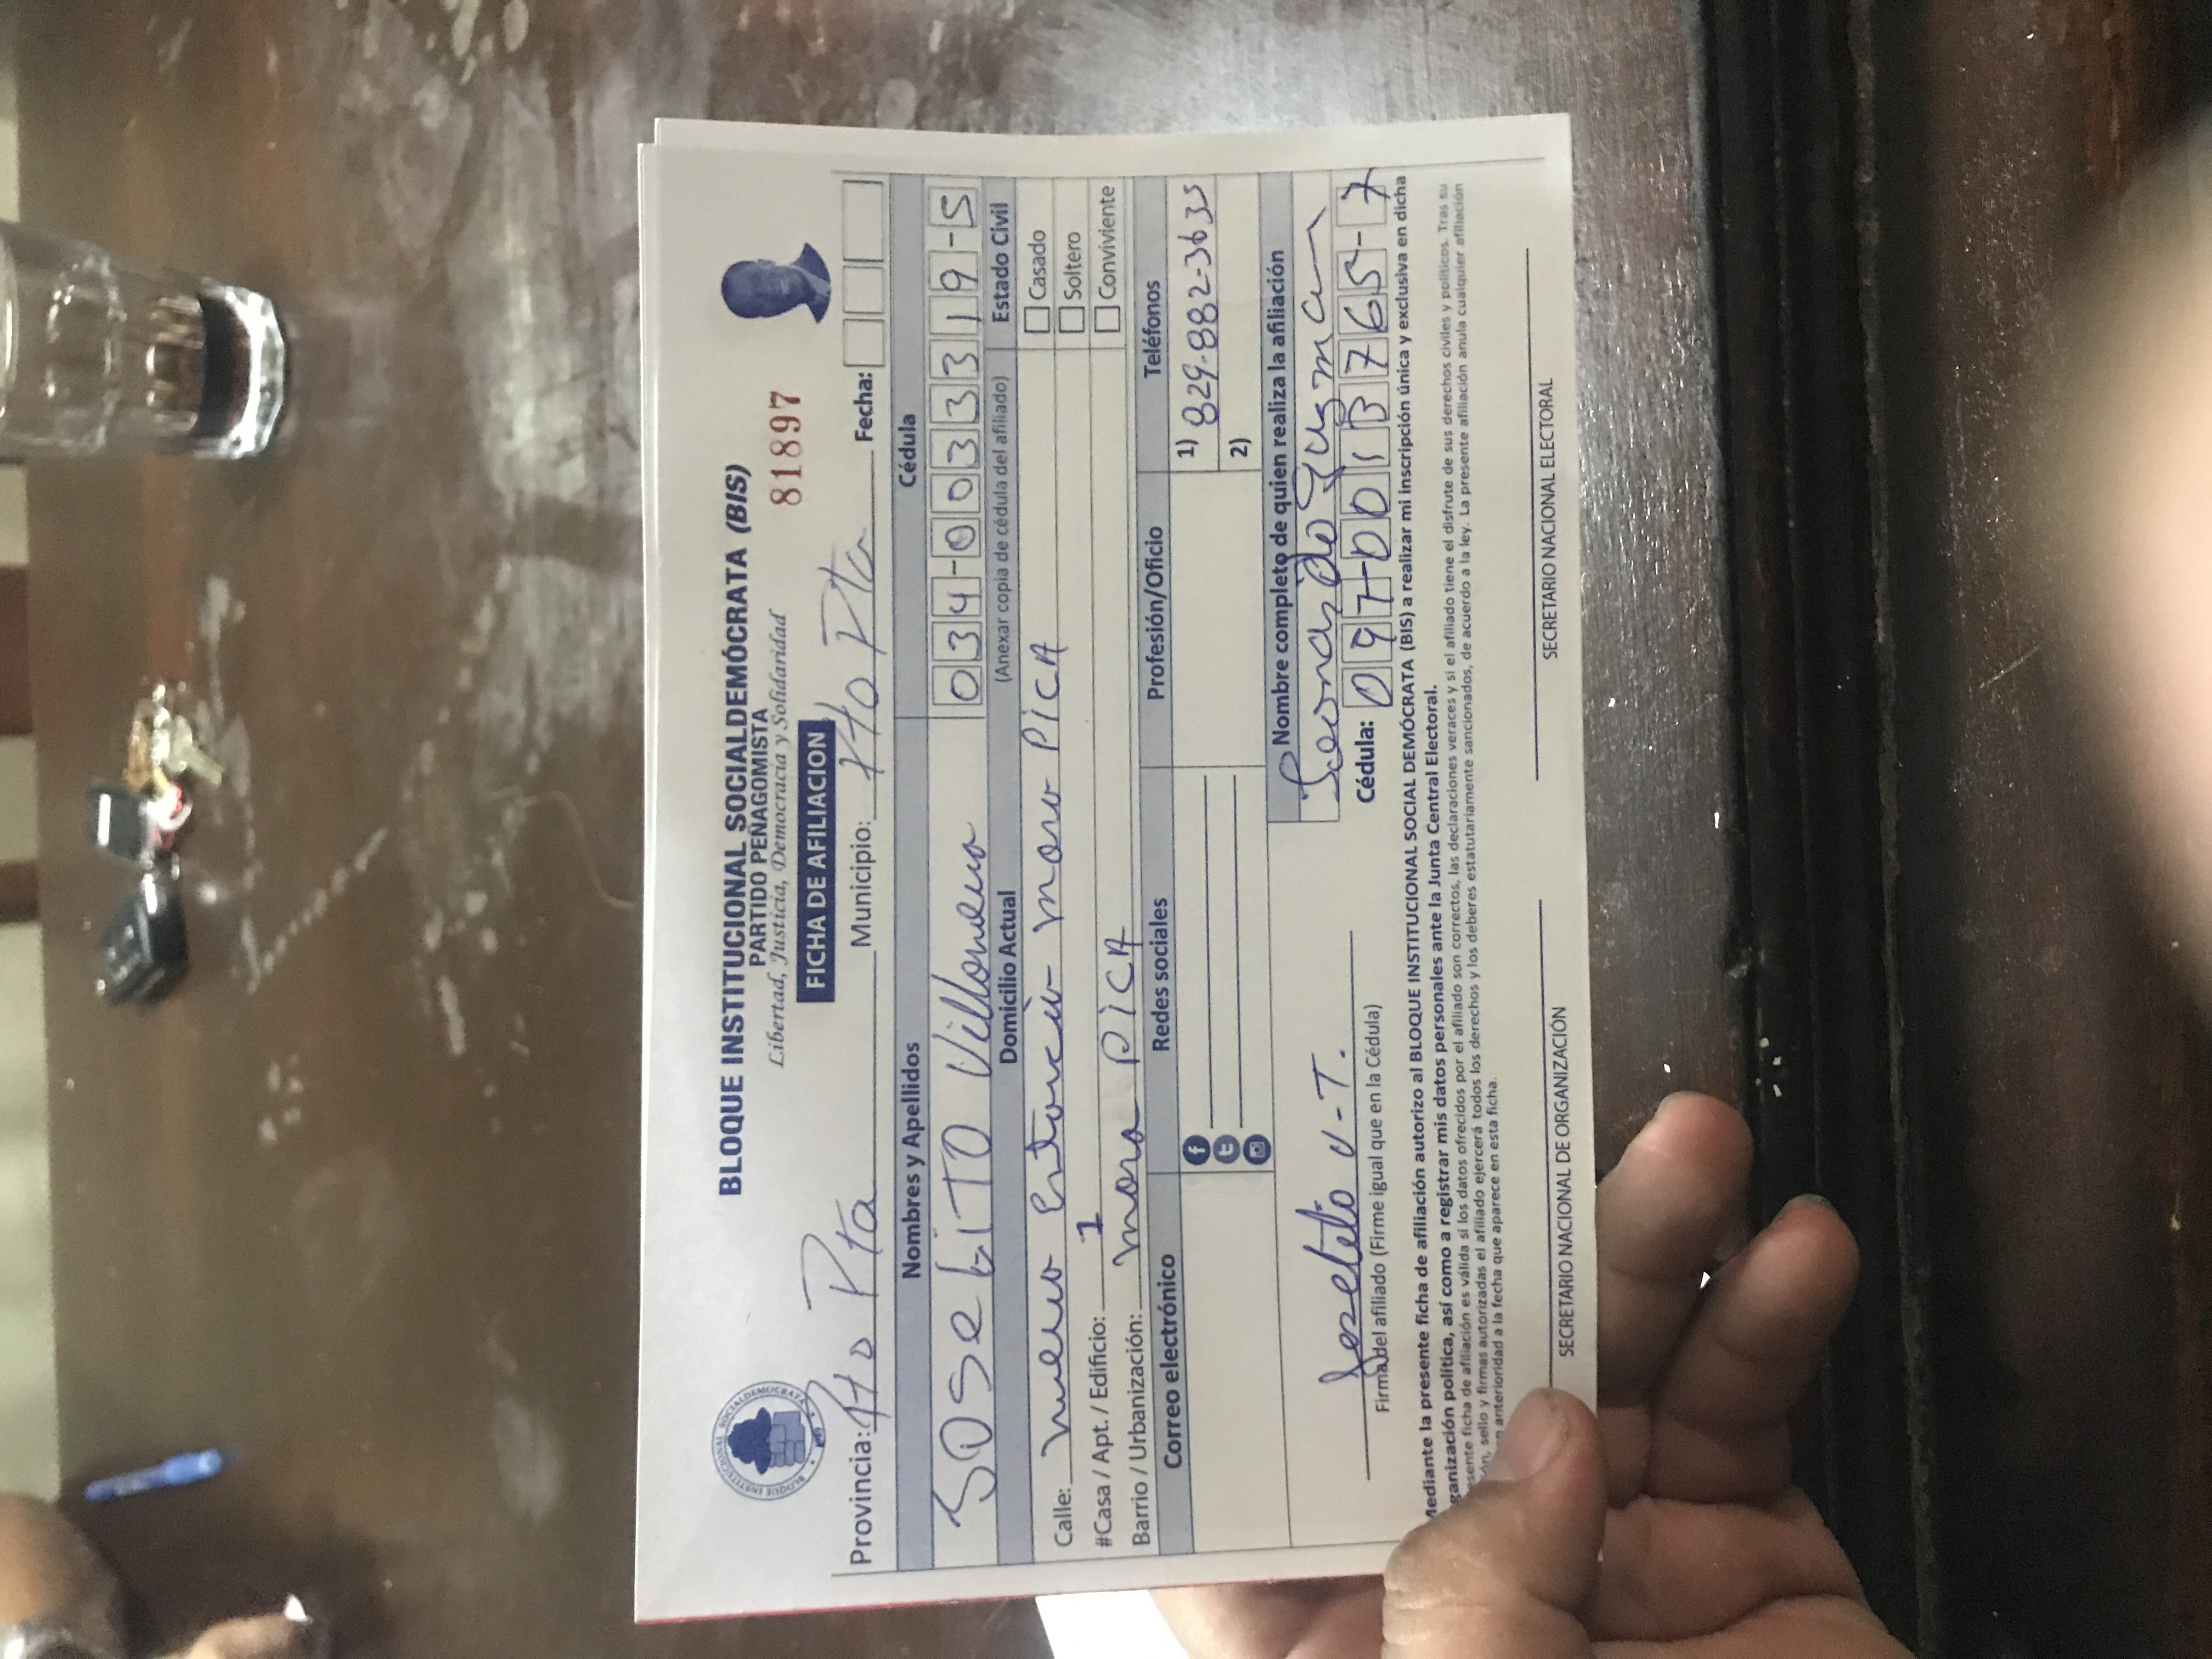 BLOQUE INSTITUCIONAL SOCIALDEMÓCRATA (BIS)
PARTIDO PEÑAGOMISTA
Libertad, Justicia, Democracia y Solidaridad
81897
FICHA DE AFILIACION
Provincia: Pto Pta Municipio: Pto Pta Fecha:
Nombres y Apellidos Cédula
JOSEbiTO Villonueva 034-0033319-5
Domicilio Actual (Anexar copia de cédula del afiliado) Estado Civil
Calle: mamo PiCA Casado
#Casa / Apt. / Edificio: 1 Soltero
Barrio / Urbanización: mamo PiCA Conviviente
Correo electrónico Redes sociales Profesión/Oficio Teléfonos
1) 829-882-3635
2)
Nombre completo de quien realiza la afiliación
Leonardo Guzman
Cédula: 097-0013765-7
Joselito V-T.
Firma del afiliado (Firme igual que en la Cédula)
Mediante la presente ficha de afiliación autorizo al BLOQUE INSTITUCIONAL SOCIAL DEMÓCRATA (BIS) a realizar mi inscripción única y exclusiva en dicha
ganización política, así como a registrar mis datos personales ante la Junta Central Electoral.
sente ficha de afiliación es válida si los datos ofrecidos por el afiliado son correctos, las declaraciones veraces y si el afiliado tiene el disfrute de sus derechos civiles y políticos. Tras su
ón, sello y firmas autorizadas el afiliado ejercerá todos los derechos y los deberes estatutariamente sancionados, de acuerdo a la ley. La presente afiliación anula cualquier afiliación
n anterioridad a la fecha que aparece en esta ficha.
SECRETARIO NACIONAL DE ORGANIZACIÓN SECRETARIO NACIONAL ELECTORAL